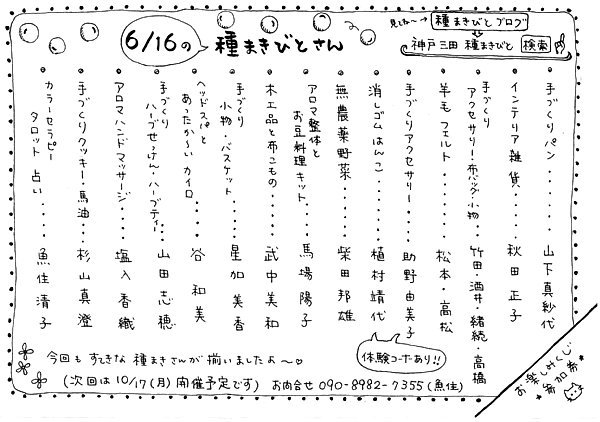 6/16の 種まきびとさん
見てね〜→ 種まきびとブログ
神戸三田 種まきびと 検索
・手づくりパン・・・・・・・山下真紗代
・インテリア雑貨・・・・秋田正子
・手づくり
アクセサリー・布バッグ・小物・・・竹田・酒井・緒続・高橋
・羊毛フェルト・・・・・松本・高松
・手づくりアクセサリー・・・・助野由美子
・消しゴムはんこ・・・・・・植村靖代
・無農薬野菜・・・・・・柴田邦雄
・アロマ整体と
お豆料理キット・・・・馬場陽子
・木工品と布こもの・・・・武中美和
・手づくり
小物・バスケット・・・・星加美香
・ヘッドスパと
あったか〜いカイロ・・・・谷和美
・手づくり
ハーブせっけん・ハーブティー・・・山田志穂
・アロマハンドマッサージ・・・・塩入香織
・手づくりクッキー・馬油・・・杉山真澄
・カラーセラピー
タロット占い・・・・・魚住清子
体験コーナーあり!!
今回も すてきな 種まきさんが 揃いましたよ〜♡
(次回は10/17(月)開催予定です) お問合せ 090-8982-7355(魚住)
お楽しみくじ
★参加券★